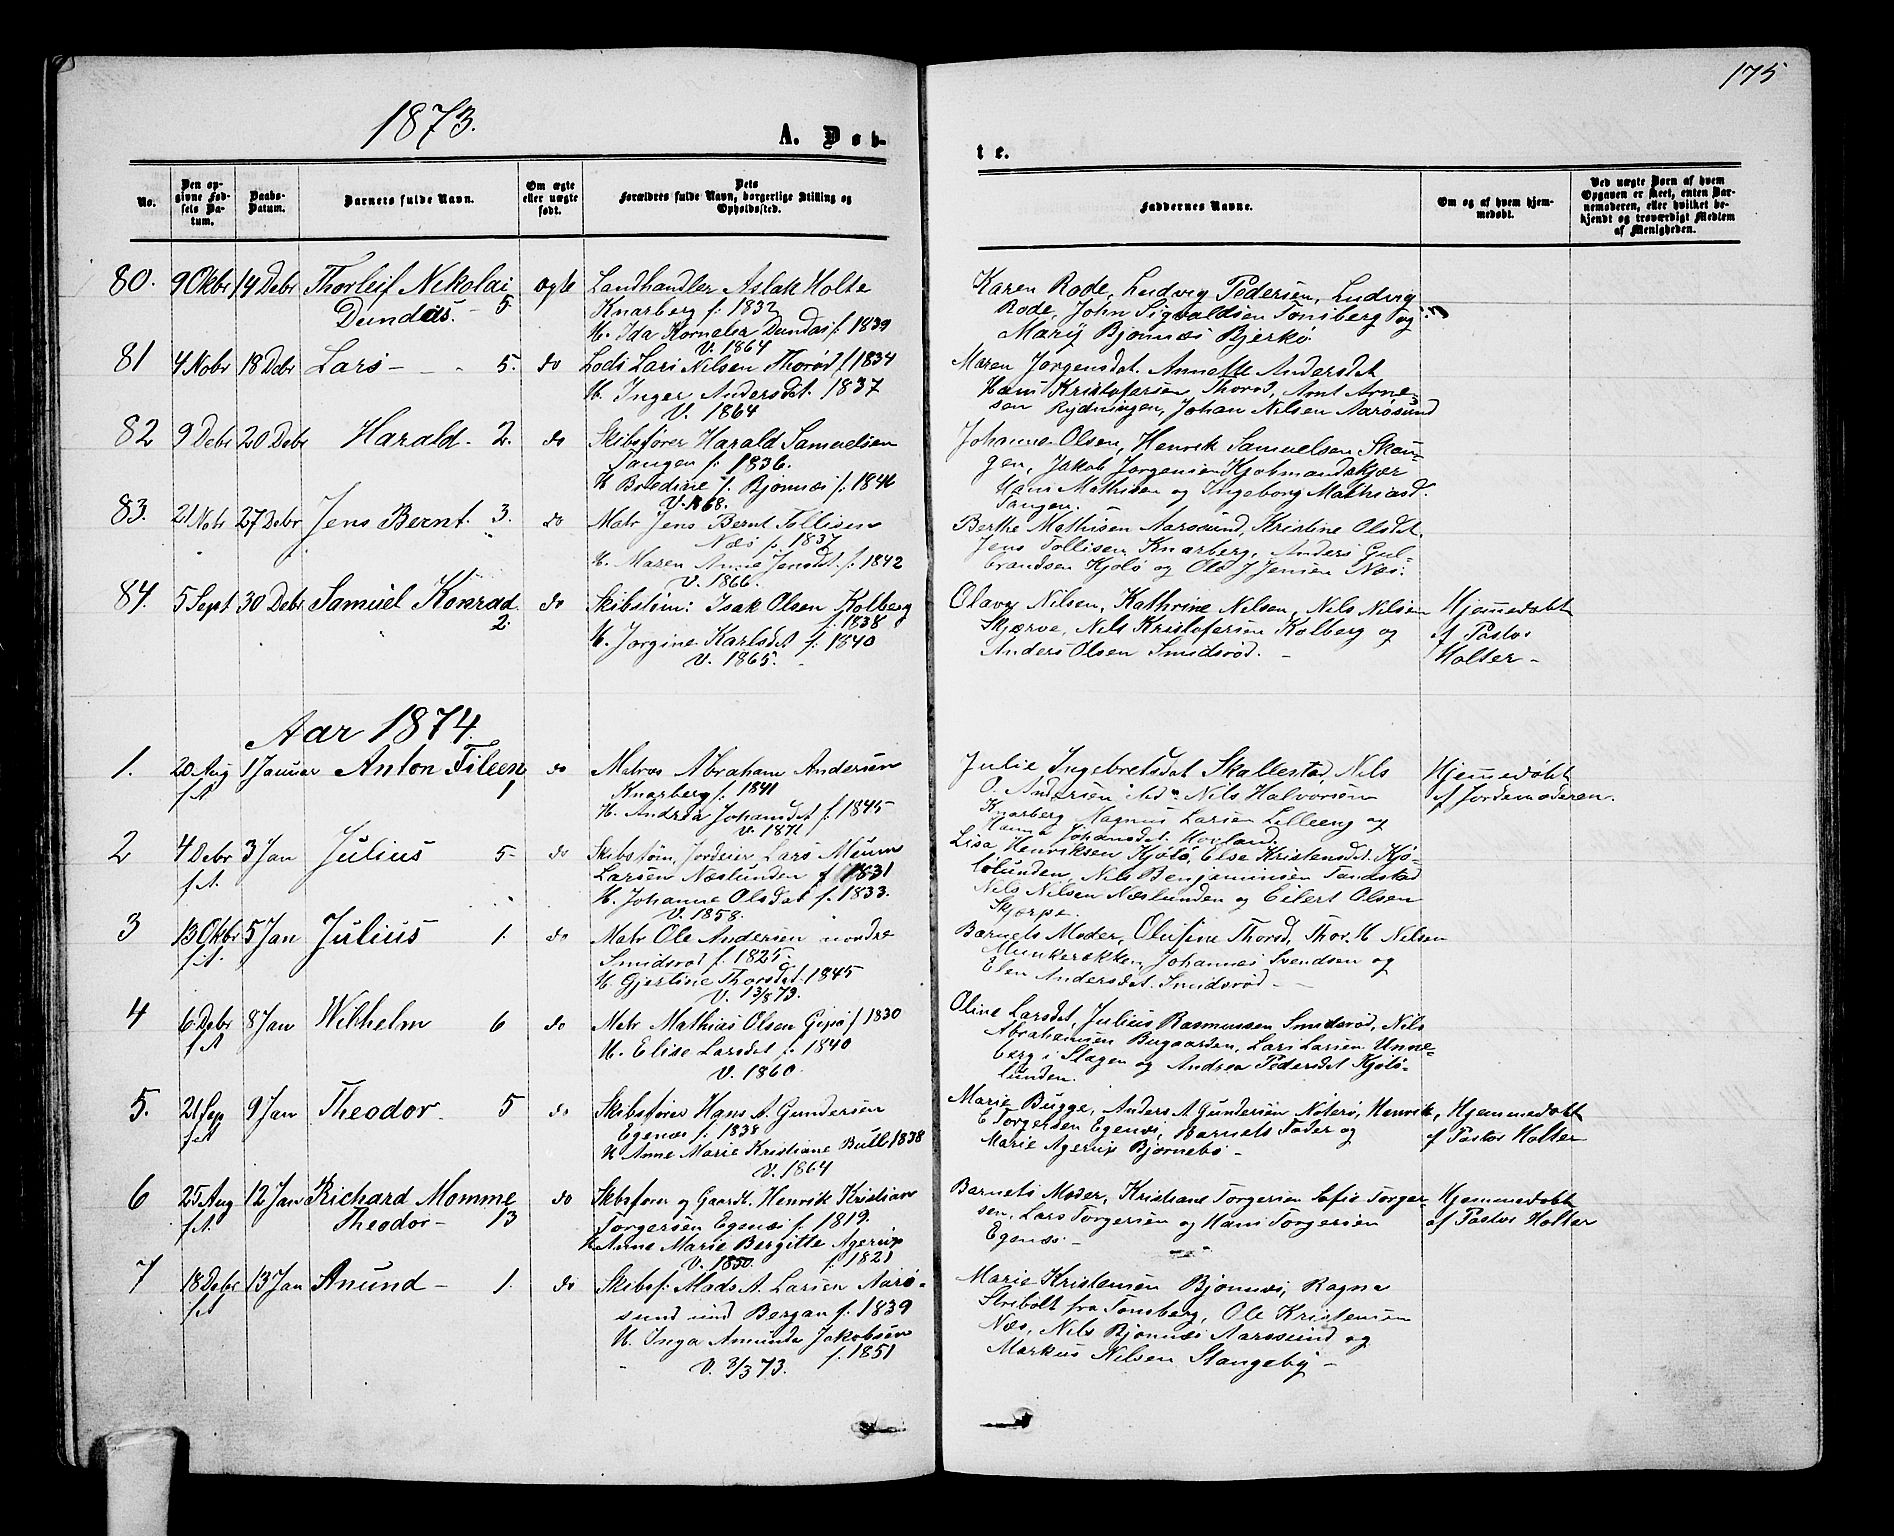 175
1873.
A. Døb-
te.
No.
Den op-
givne Fød-
sels Da-
tum.
Daabs-
Datum.
Barnets fulde Navn.
Om ægte
eller uægte
født.
Dets
Forældres fulde Navn, borgerlige Stilling og
Opholdssted.
Faddernes Navne.
Om og af hvem hjem-
medøbt.
Ved uægte Børn af hvem
Opgaven er skeet, enten Bar-
nemoderen, eller hvilket be-
kjendt og troværdigt Medlem
af Menigheden.
80. 9 Okbr 14 Debr Thorleif Nikolai ægte Landhandler Aslak Holte
Dundas. - 5 Knarberg f. 1832
H. Ida Kornelia Dundas f. 1839
V. 1864
Karen Rode, Ludvig Pedersen, Ludvig
Rode, John Sigvaldsen Tonsberg og
Mary Bjonnæs Bjerkø
81 4 Nobr 18 Debr Lars - - - 5. do Lods Lars Nilsen Thorød f 1834
H. Inger Andersdat. 1837
V. 1864
Maren Jorgensdat. Annette Andersdat
Hans Kristofersen Thorød, Arnt Arne-
sen Rydningen, Johan Nilsen Aarøsund
82 9 Debr 20 Debr Harald - 2. do Skibsfører Harald Samuelsen
Tangen f. 1836.
H Bredine f. Bjonnæs f. 1846
V. 1868.
Johanne Olsen, Henrik Samuelsen Skau-
gen, Jakob Jorgensen Kjobmandskjær
Hans Mathisen og Ingeborg Mathiasd.
Tangen.
83. 21 Nobr 27 Debr Jens Bernt. 3. do Matr Jens Bernt Tollisen
Næs f. 1837
H. Maren Anne Jensdt. f. 1842
V. 1866.
Berthe Mathisen Aarosund, Kristine Olsdt.
Jens Tollisen Knarberg, Anders Gul-
brandsen Kjolø og Ole J Jensen Næs.
84. 5 Sept 30 Debr Samuel Konrad do Skibstøm: Isak Olsen Kolberg
2. f. 1838
H. Jorgine Karlsdet f. 1840
V. 1865.
Olava Nilsen, Kathrine Nilsen, Nils Nilsen
Skjærve, Nils Kristofersen Kolberg og
Anders Olsen Smidsrød. -
Hjemmedøbt
af Pastor
Holter -
Aar 1874.
1. 20 Aug 1 Januar Anton Fileen do Matros Abraham Andersen
f A 1 Knarberg f. 1841
H. Andrea Johansdet f. 1845
V. 1871
Julie Ingebretsdat Skallestad, Nils
O. Andersen ibd Nils Halvorsen
Knarberg Magnus Larsen Lilleeng og
Hanna Johansdet. Hovland
Hjemmedøbt
af Jordemoderen.
2 4 Debr 3 Jan Julius 5- do Skibstøm, Jordeier Lars Meum
f A. Larsen Næslunden f 1831
H. Johanne Olsdat f. 1833.
V. 1858.
Lisa Henriksen Kjolø, Else Kristensdet. Kjø-
lølunden, Nils Benjaminsen Tandstad
Nils Nilsen Næslunden og Eilert Olsen
Skjærpe.
3 13 Okbr 5 Jan Julius 1. do Matr Ole Andersen nordre
f.A. Smidsrød f. 1825.
H. Gjertine Thorsdat. 1845
V. 13/8 73.
Barnets Moder, Olufine Thorsd, Thor. H Nilsen
Munkerækken, Johannes Svendsen og
Elen Andersdet. Smidsrød - -
4 6 Debr 8 Jan Wilhelm 6 do Matr Mathias Olsen Gipø f 1830
f A H. Elise Larsdet f. 1840
V. 1860.
Oline Larsdet, Julius Rasmussen Smidsrød, Nils
Abrahamsen Bugaarden, Lars Larsen Unne-
berg i Slagen og Andrea Pedersdet Kjolø-
lunden.
5. 21 Sep 9 Jan Theodor. 5 do Skibsfører Hans A. Gundersen
f A Egenæs f. 1838
H Anne Marie Kristiane Bull 1838
V. 1864
Marie Bugge, Anders A Gundersen Nøterø, Henrik
E Torgersen Egenæs, Barnets Fader og
Marie Agerup Bjornebo -
Hjemmedøbt
af Pastor Holter
6 25 Aug 12 Jan Richard Momme do Skibsfører og Gaardb. Henrik Kristian
f.A. Theodor - 13 Torgersen Egenæs f. 1819.
H Anne Marie Bergitte Agerup
V. 1850. f. 1821
Barnets Moder, Kristiane Torgersen Sofie Torger-
sen, Lars Torgersen og Hans Torgersen
Egenæs -
Hjemmedøbt
af Pastor Holter
7 18 Debr 13 Jan Anund - 1. do Skibsf. Mads A. Larsen Aarø-
f A sund Bergan f. 1839
H. Inga Amunda Jakobsen
V. 8/3 73. f. 1851
Marie Kristensen Bjonnæs, Ragna
Stribolt fra Tonsberg, Ole Kristensen
Næs, Nils Bjonnæs Aarosund og
Markus Nilsen Stangeby -